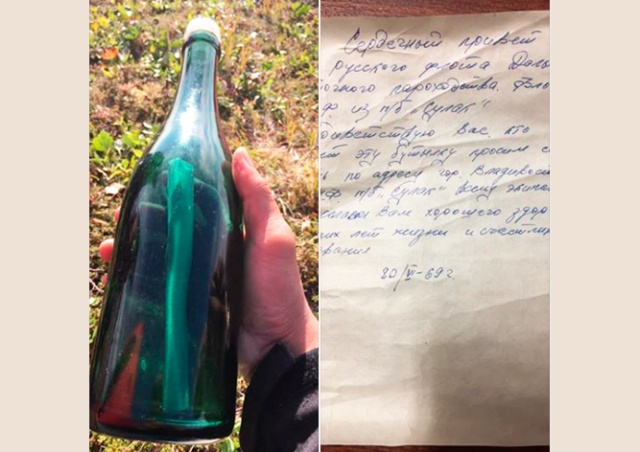 Сердечный привет
русского флота Даль
точного пароходства. Вла
Ф из т/б „Сулак"
ветствую Вас, кто
ет эту бутылку просим с
ь по адресу гор. Владивост
Ф. т/б. „Сулак" всему экипа
Вам хорошего здор
их лет жизни и счастлив
вания
20/VI-69г.